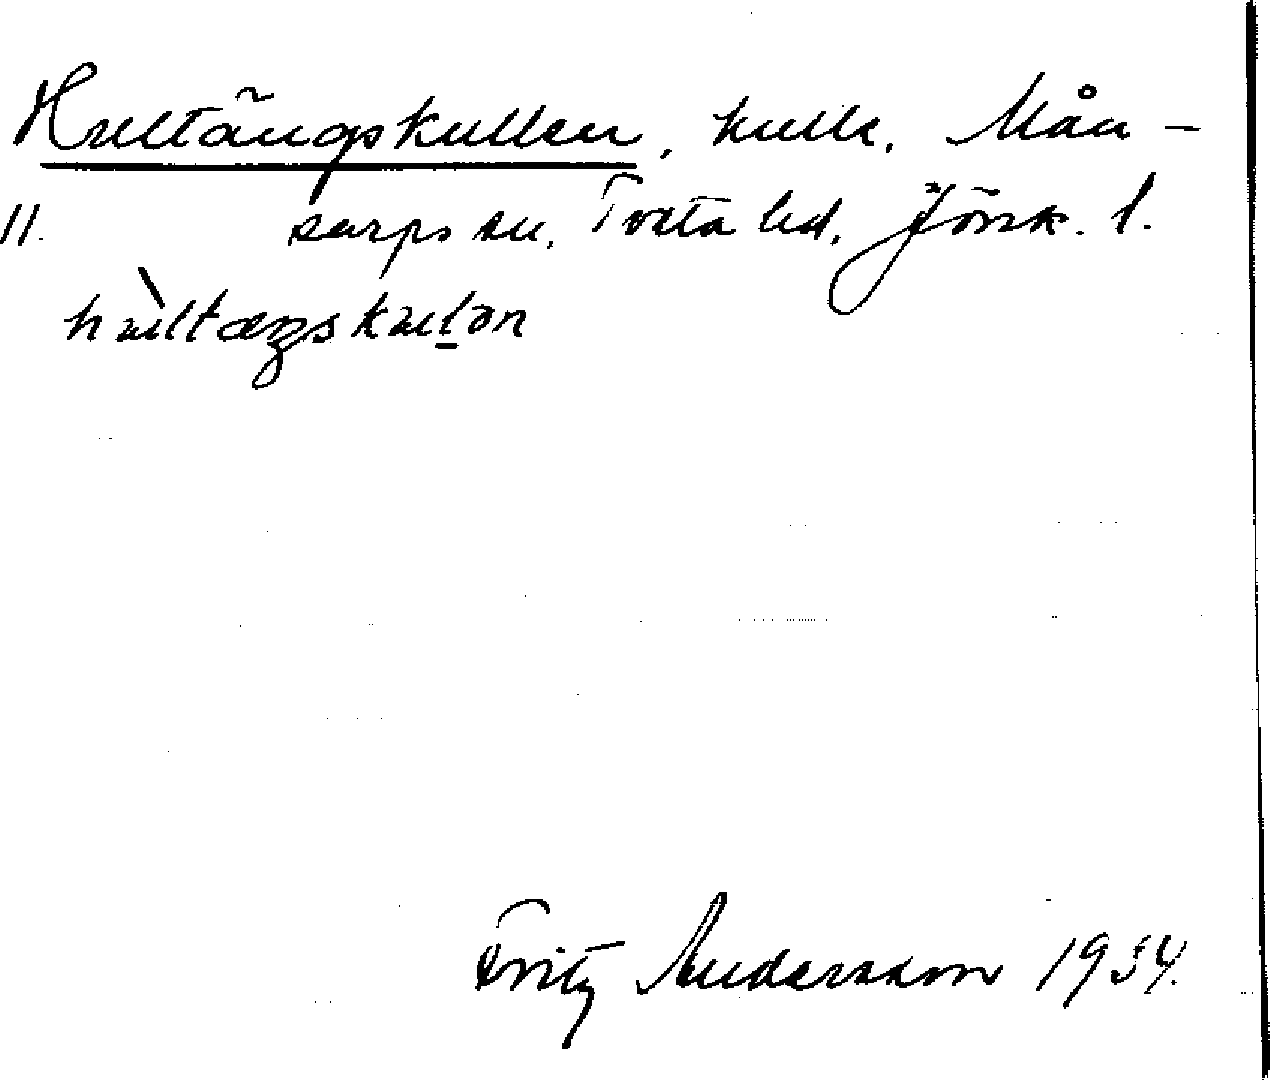 Hultängskullen, kulle. Mån-
11. sarps sn, Tveta hd, Jönk. l.
hùltæŋskulən
Fritz Andersson 1934.